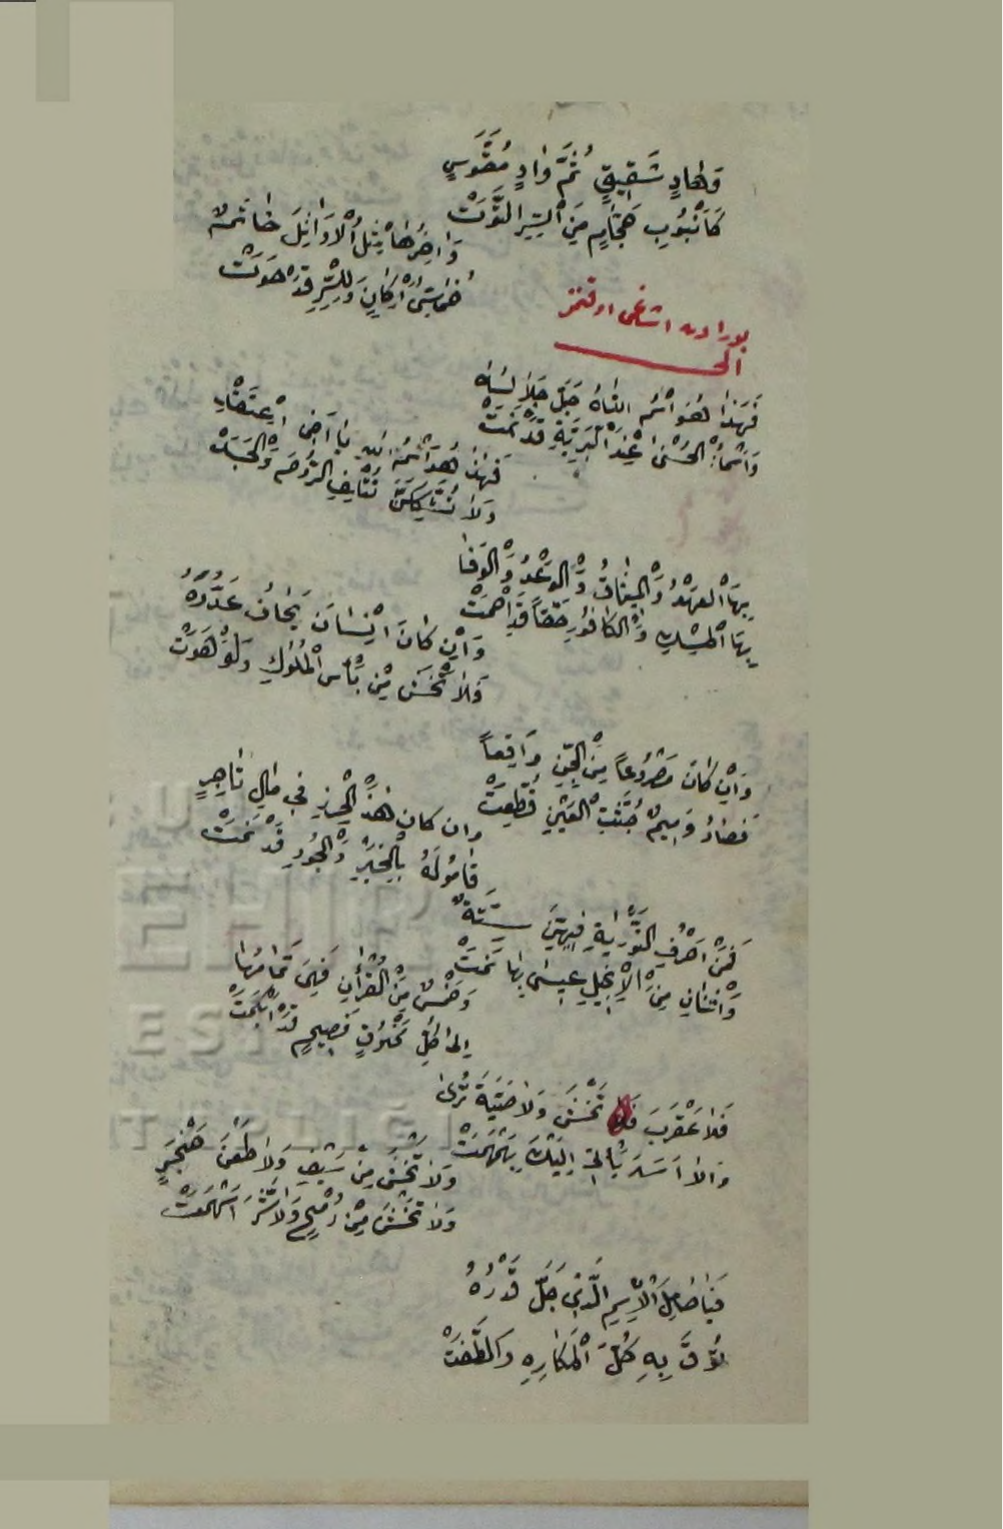 وَهَاءٍ شَقِيقٍ ثُمَّ وَاوٍ مُقَوَّسٍ
كَاَنْبُوبِ حَجَّامٍ مِنَ السِّرِّ الْتَوَتْ
وَاٰخِرُهَا مِثْلُ الْاَوَائِلَ خَاتَمٌ
خُمَاسِىُّ اَرْكَانٍ وَلِلسِّرِّ قَدْ حَوَتْ
بورادن اشاغى اوقنمز
الخ
فَهَذَا هُوَ اسْمُ اللّٰهُ جَلَّ جَلَالُهُ
وَاَسْمَاءُ الْحُسْنٰى عِنْدَ الْبَرِيَّةِ قَدْ نَمَتْ
فَهٰذَا هُوَ اسْمُ اللّٰهِ يَا اَخِى اعْتَقِدْ
وَلَا تُشَكِّكَنَّ تُتْلِفِ الرُّوحَ وَالْجَسَدَ
بِهَا الْعَهْدُ وَالْمِيثَاقُ وَالْوَعْدُ وَالْوَفَا
بِهَا الْمِسْكِ وَالْكَافُورِ حَقًّا قَدِ اخْتَمَتْ
وَاِنْ كَانَ اِنْسَانَ يَخَافُ عَدُوَّهُ
فَلَا تَخْشَ مِنْ بَأْسِ الْمُلُوكِ وَلَوْ هَوَتْ
وَاِنْ كَانَ مَصْرُوعًا مِنَ الْجِنِّ وَاقِعًا
وان كان هَذَ الْحِرْزِ فِى مَالِ تَاجِرٍ
فَامُولَهُ بِالْخَيْرِ وَالْجُودِ قَدْ نَمَتْ
فَمِنْ اَحْرُفِ التَّوْرَايةِ فِيهِنَّ سِتَّةٌ
وَاثْنَانِ مِنَ الْاِنْجِيلِ عِيسٰى بِهَا نَمَتْ
وَخَمْسٌ مِنَ الْقُرْاٰنِ فَهِىَ تَمَامُهَا
اِلٰى كُلِّ مَخْلُوقٍ فَصِيحٍ قَدْ اَبْكَمَتْ
فَلَا عَقْرَبَ فَلَا تَخْشَ وَلَا حَيَّةَ تُرٰى
وَالَا اَسَدَ يَأْتِى اِلَيْكَ بِهَمْهَمَتْ
وَلَا تَخْشَ مِنْ سَيْفٍ وَلَا طَعْنَ خَنْجَرٍ
وَلَا تَخْشَ مِنْ رُمْحٍ وَلَا شَرَّ اَسْهَمَتْ
فَيَا حَامِلَ الْاِسْمِ الَّذِى جَلَّ قَدْرُهُ
تُوَقَّ بِهِ كُلَّ الْمَكَارِهِ وَ